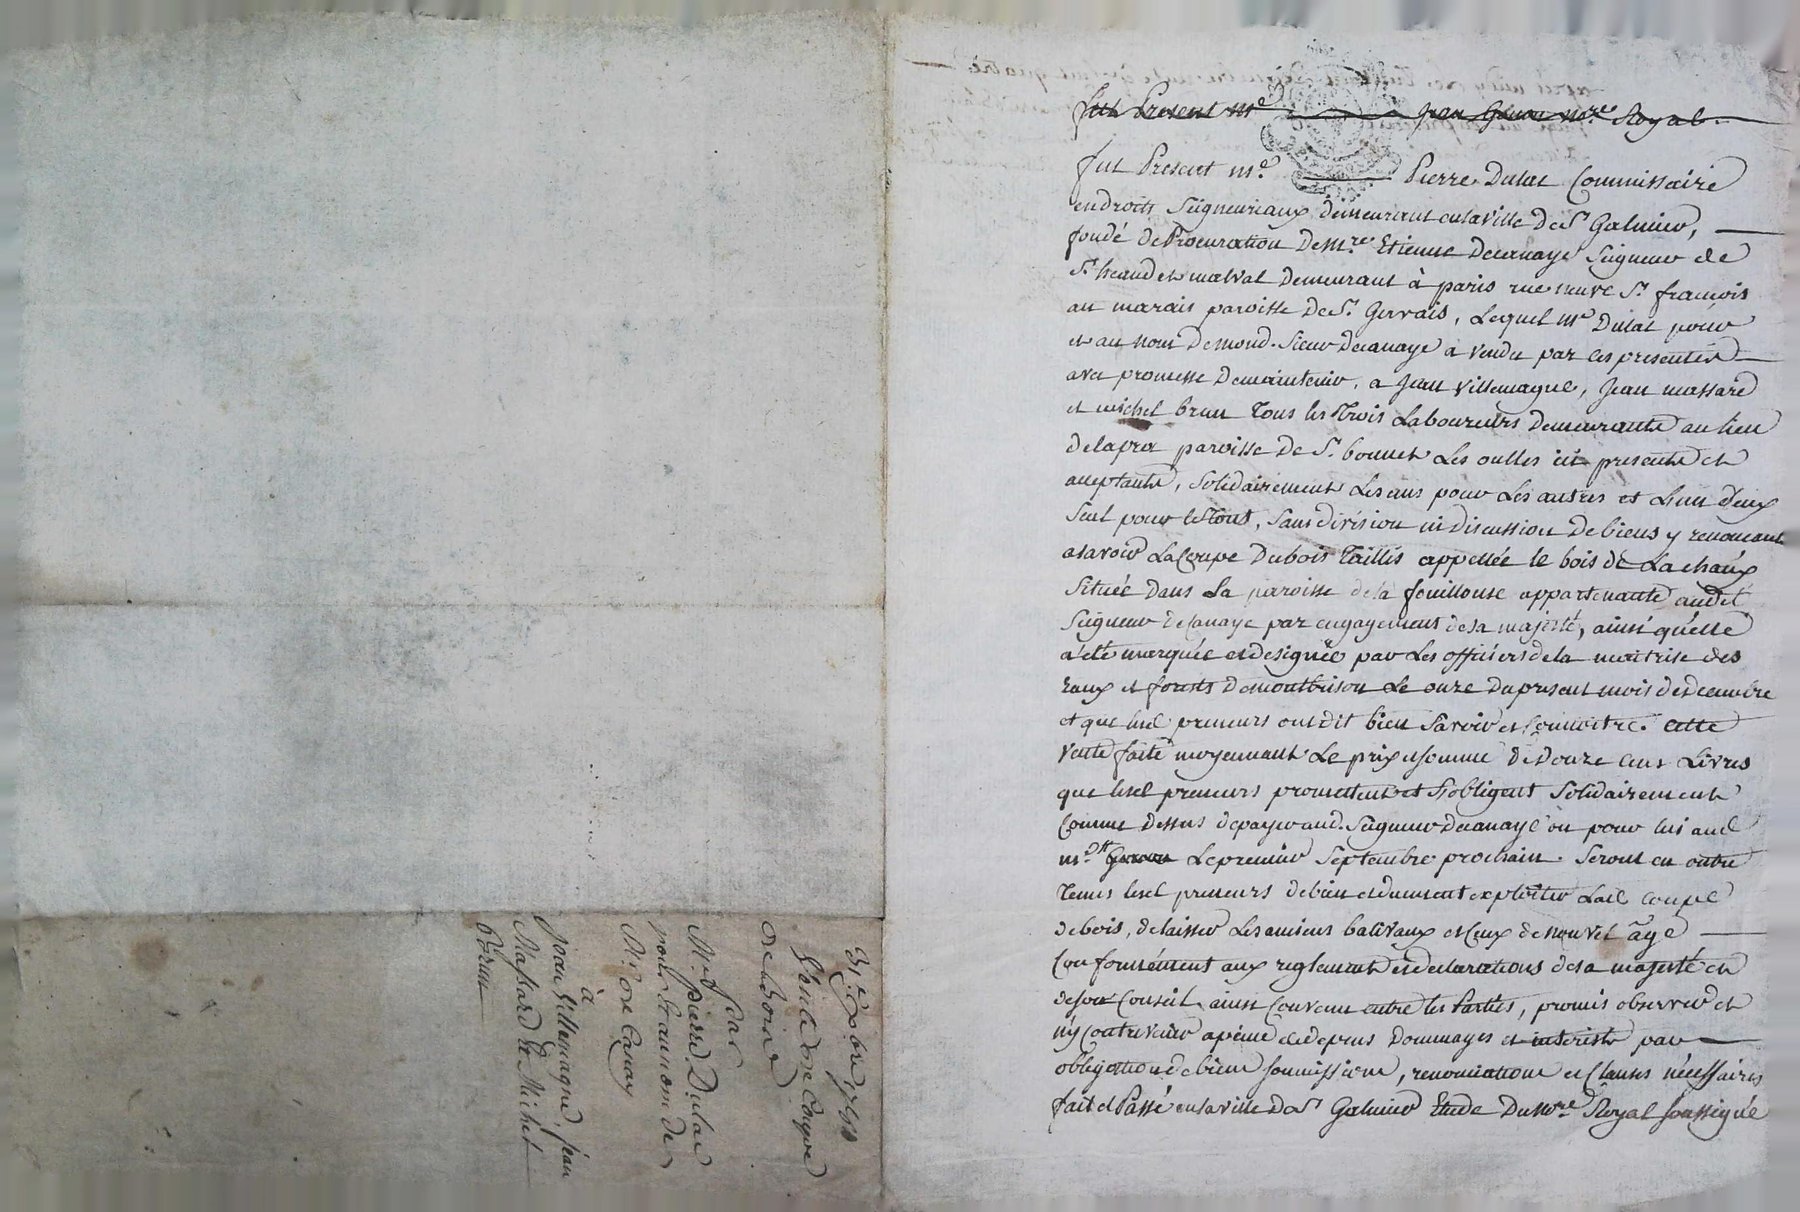 fut Present Me Jean Gonon Nre Royal
fut Present me. Pierre Dulac Commissaire
en droits Seigneuriaux demeurant en la ville de St Galmier,
fondé de Procuration de Mre Etienne Decanaye Seigneur de
St heand et malval demeurant à paris rue neuve St françois
au marais paroisse de St. Gervais, Lequel me Dulac pour
et au nom de mond. Sieur Decanaye a vendu par ces presentes
avec promesse de maintenir, a Jean Villemagne, Jean massard
et michel brun Tous les Trois Laboureurs demeurants au lieu
de la pra paroisse de St. bonnet Les oulles ici presents et
acceptants, Solidairement Les uns pour Les autres et L'un d'eux
Seul pour le Tout, Sans division ni discussion de biens y renonceant
a Savoir La Coupe du bois Taillis appellée le bois de La chaux
Située dans La paroisse de la fouillouse appartenante audit
Seigneur de Canaye par engagement de sa majesté, ainsi qu'elle
a été marquée et designée par Les officiers de la maitrise des
Eaux et forests de montbrison Le onze du present mois de decembre
et que lesd preneurs ont dit bien Savoir et Connoitre. Cette
Vente faite moyennant Le prix et somme de Douze Cent Livres
que lesd preneurs promettent et s'obligent Solidairement
Comme dessus de payer aud. Seigneur decanaye ou pour lui aud
me Gonon Le premier Septembre prochain. Seront en outre
Tenus lesd preneurs de bien et duement exploiter Lad coupe
de bois, de laisser Les anciens balivaux et Ceux de nouvel âge
Conformément aux reglements et declarations de sa majesté et
de son Conseil, ainsi Convenu entre les Parties, promis observer et
n'y Contrevenir a peine de depens dommages et interists par
obligation de biens soumissions, renonciations et Clauses nécessaires
fait et Passé en la ville de St Galmier Etude du Nre Royal soussigné
31e xbre
Vente de Coupe
de bois
par
Me pierre Dulac
pour et au nom de
Mr de Canay
à
jean Villemagne, jean
Massard et Michel
Brun